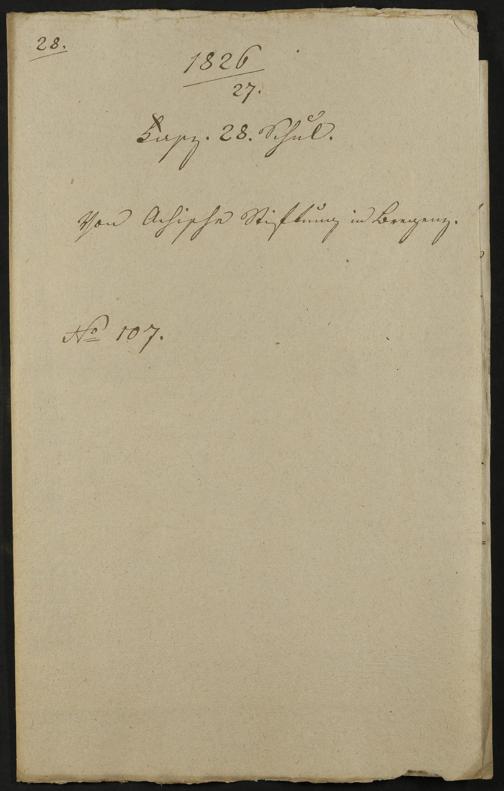 28.
1826
27.
Fasz. 28. Schul.
Von Achische Stiftung in Bregenz.
No 107.